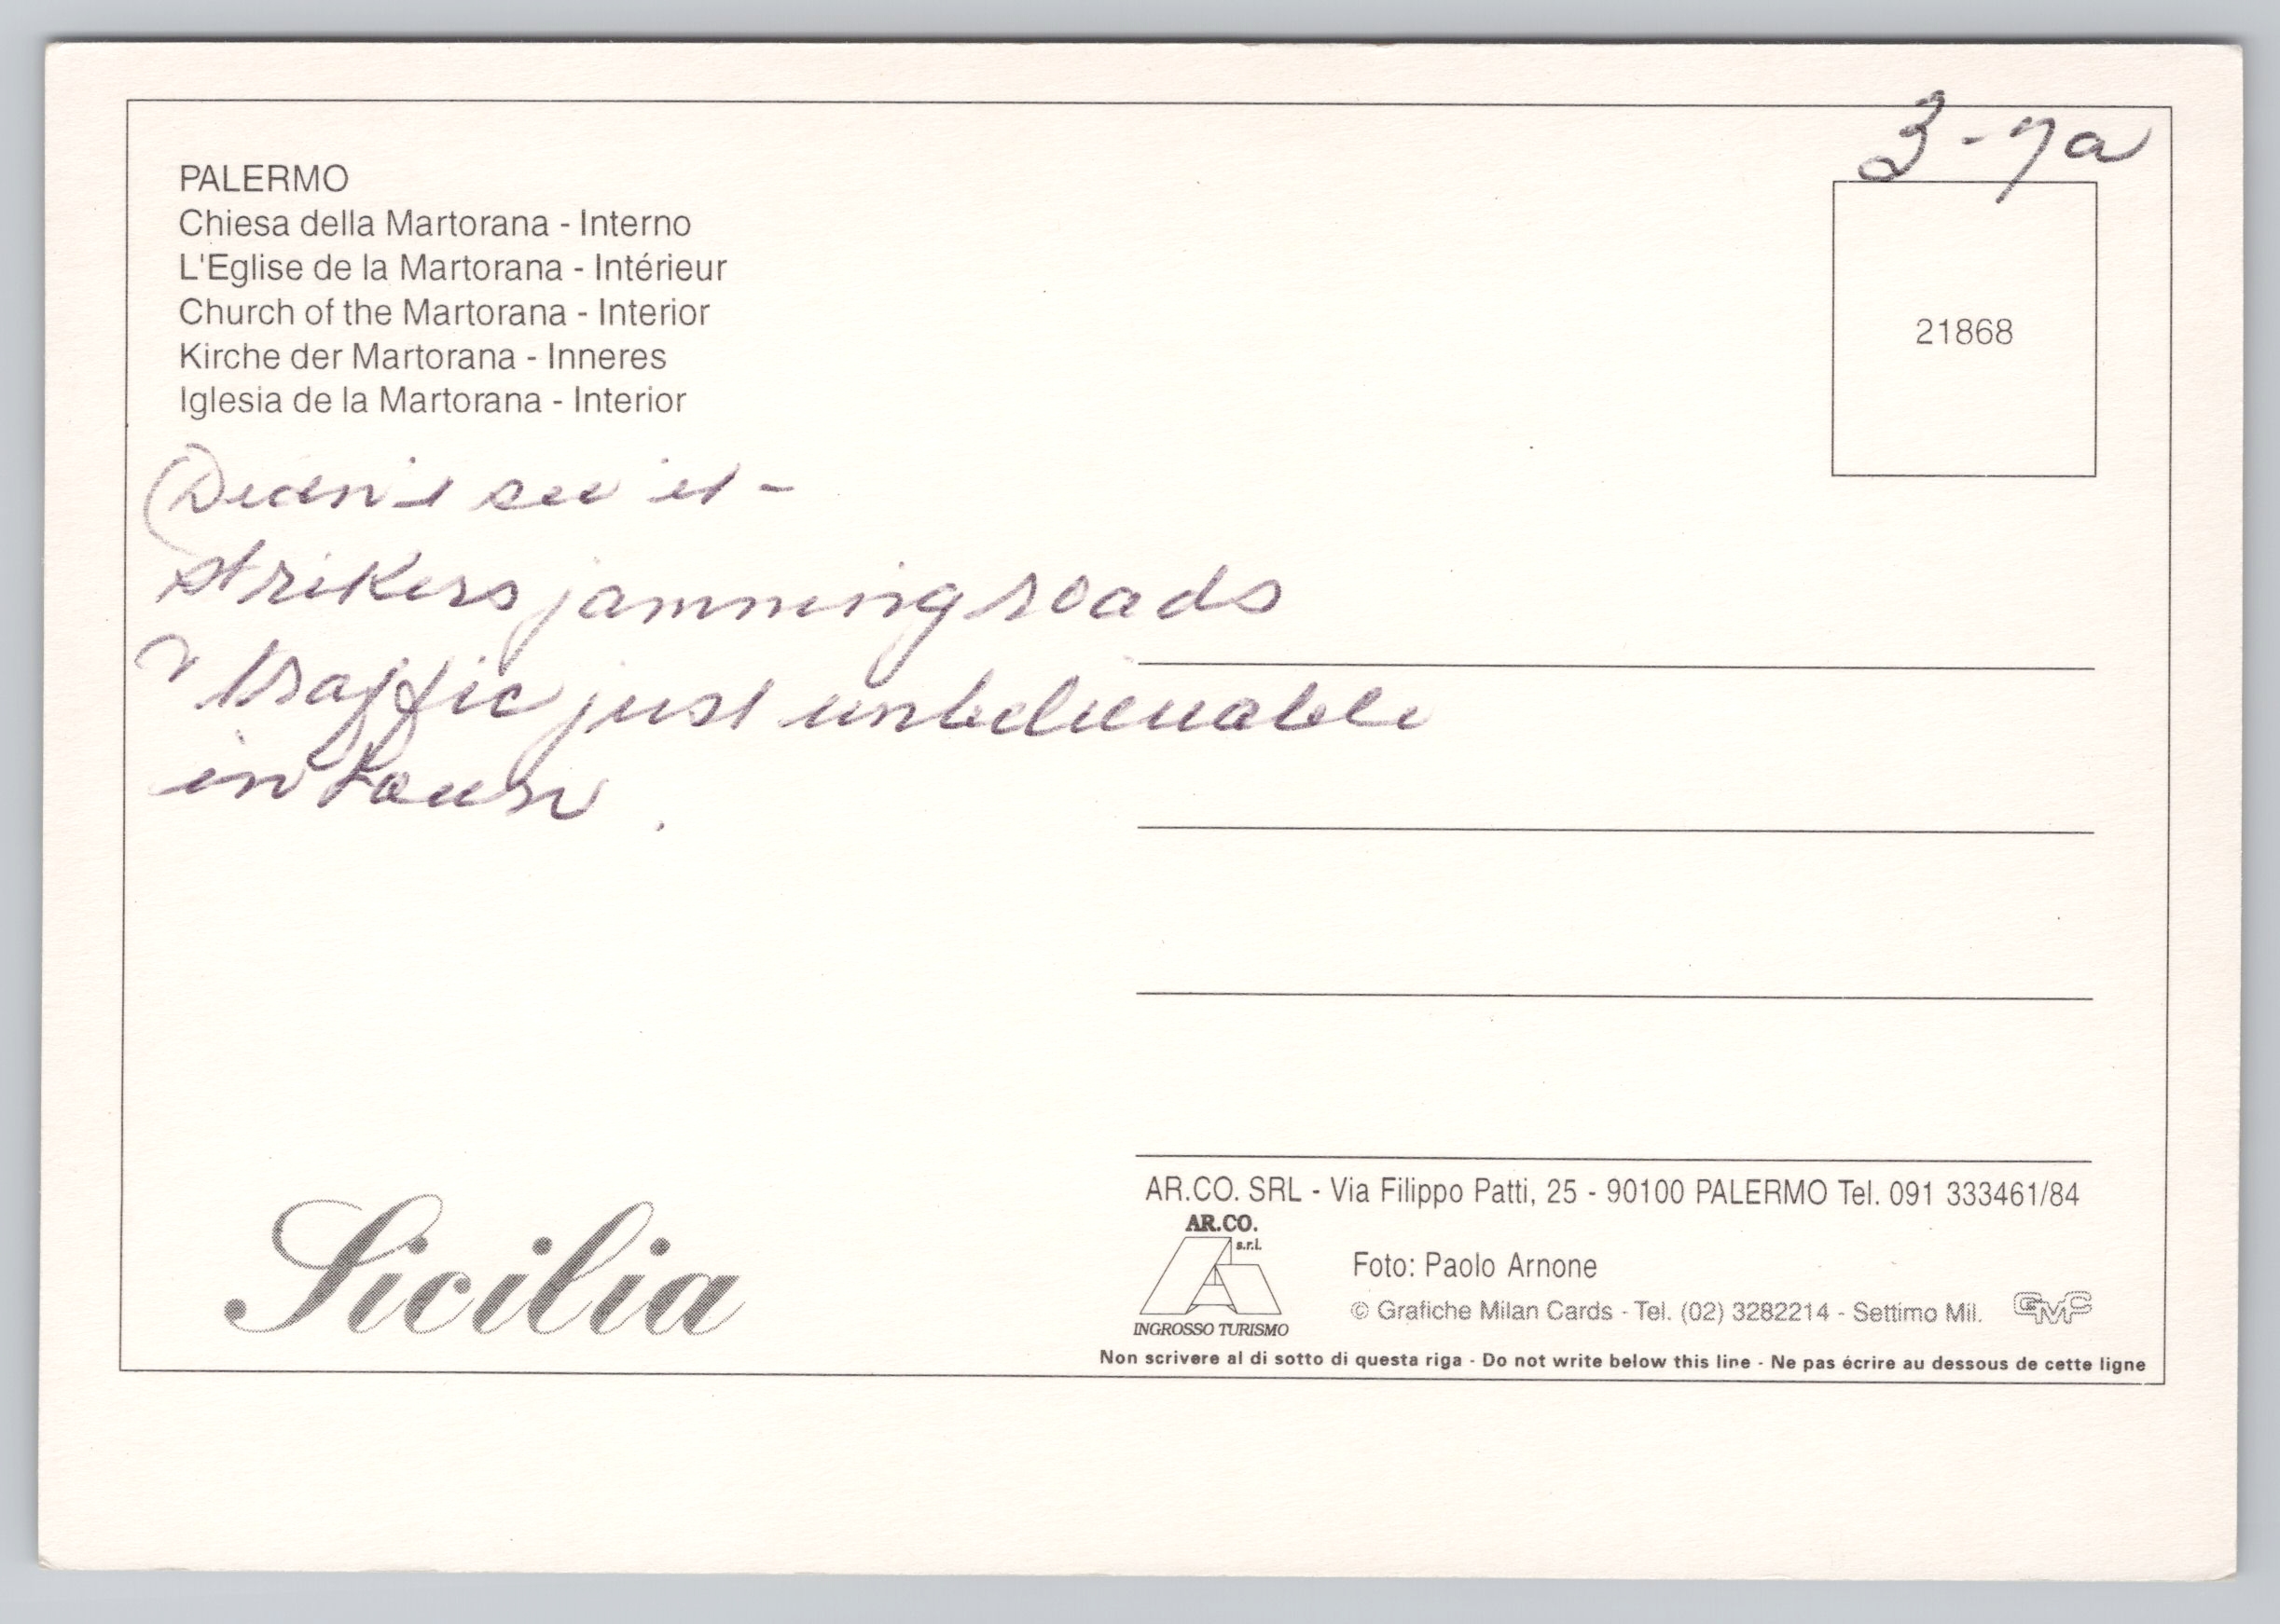 3-7a
PALERMO
Chiesa della Martorana - Interno
L'Eglise de la Martorana - Intérieur
Church of the Martorana - Interior
Kirche der Martorana - Inneres
Iglesia de la Martorana - Interior
21868
Didn't see it -
strikers jamming roads
& traffic just unbelievable
in town.
Sicilia
AR.CO. SRL - Via Filippo Patti, 25 - 90100 PALERMO Tel. 091 333461/84
AR.CO.
s.r.l.
INGROSSO TURISMO
Foto: Paolo Arnone
© Grafiche Milan Cards - Tel. (02) 3282214 - Settimo Mil.
GMC
Non scrivere al di sotto di questa riga - Do not write below this line - Ne pas écrire au dessous de cette ligne